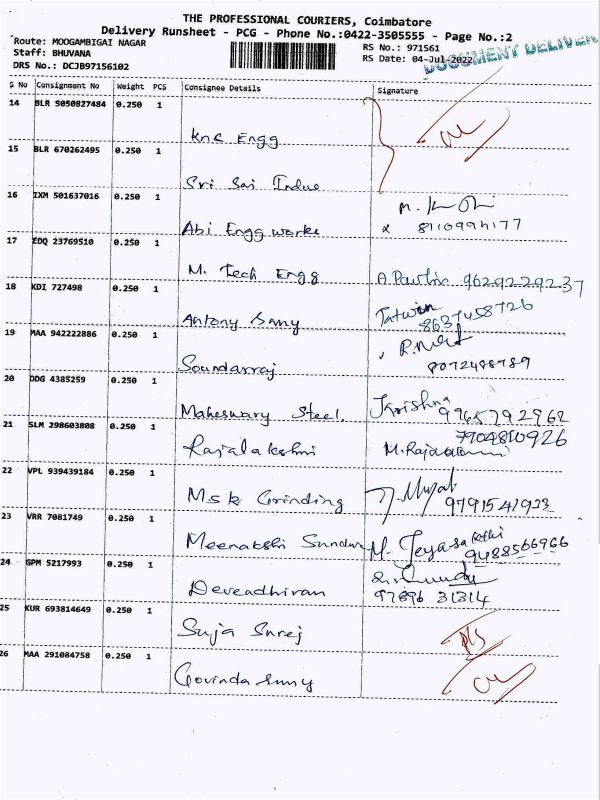 THE PROFESSIONAL COURIERS, Coimbatore
Delivery Runsheet - PCG - Phone No.:0422-3505555 - Page No.:2
Route: MOOGAMBIGAI NAGAR
Staff: BHUVANA
DRS No.: DCJB97156102
RS No.: 971561
RS Date: 04-Jul-2022
DOCUMENT DELIVER
S No Consignment No Weight PCS Consignee Details Signature
14 BLR 5050827484 0.250 1
Knc Engg
15 BLR 670262495 0.250 1
Sri Sai Indus
16 IXM 501637016 0.250 1
Abi Engg works 8110994177
17 EDQ 23769510 0.250 1
M. Tech Engg A. Pavthi 9629229237
18 KDI 727498 0.250 1
Antony Samy 8637458726
19 MAA 942222886 0.250 1
Soundarraj 8072488789
20 DDG 4385259 0.250 1
Maheswary Steel. Krishna 9965792962
21 SLM 298603808 0.250 1
Rajalakshmi 7904810926
22 VPL 939439184 0.250 1
Msk Grinding 9791541933
23 VRR 7081749 0.250 1
Meenakshi Sundar M. Jeyasakthi 9488566966
24 GPM 5217993 0.250 1
Deveadhiran 97896 31314
25 KUR 693814649 0.250 1
Suja
26 MAA 291084758 0.250 1
Govinda